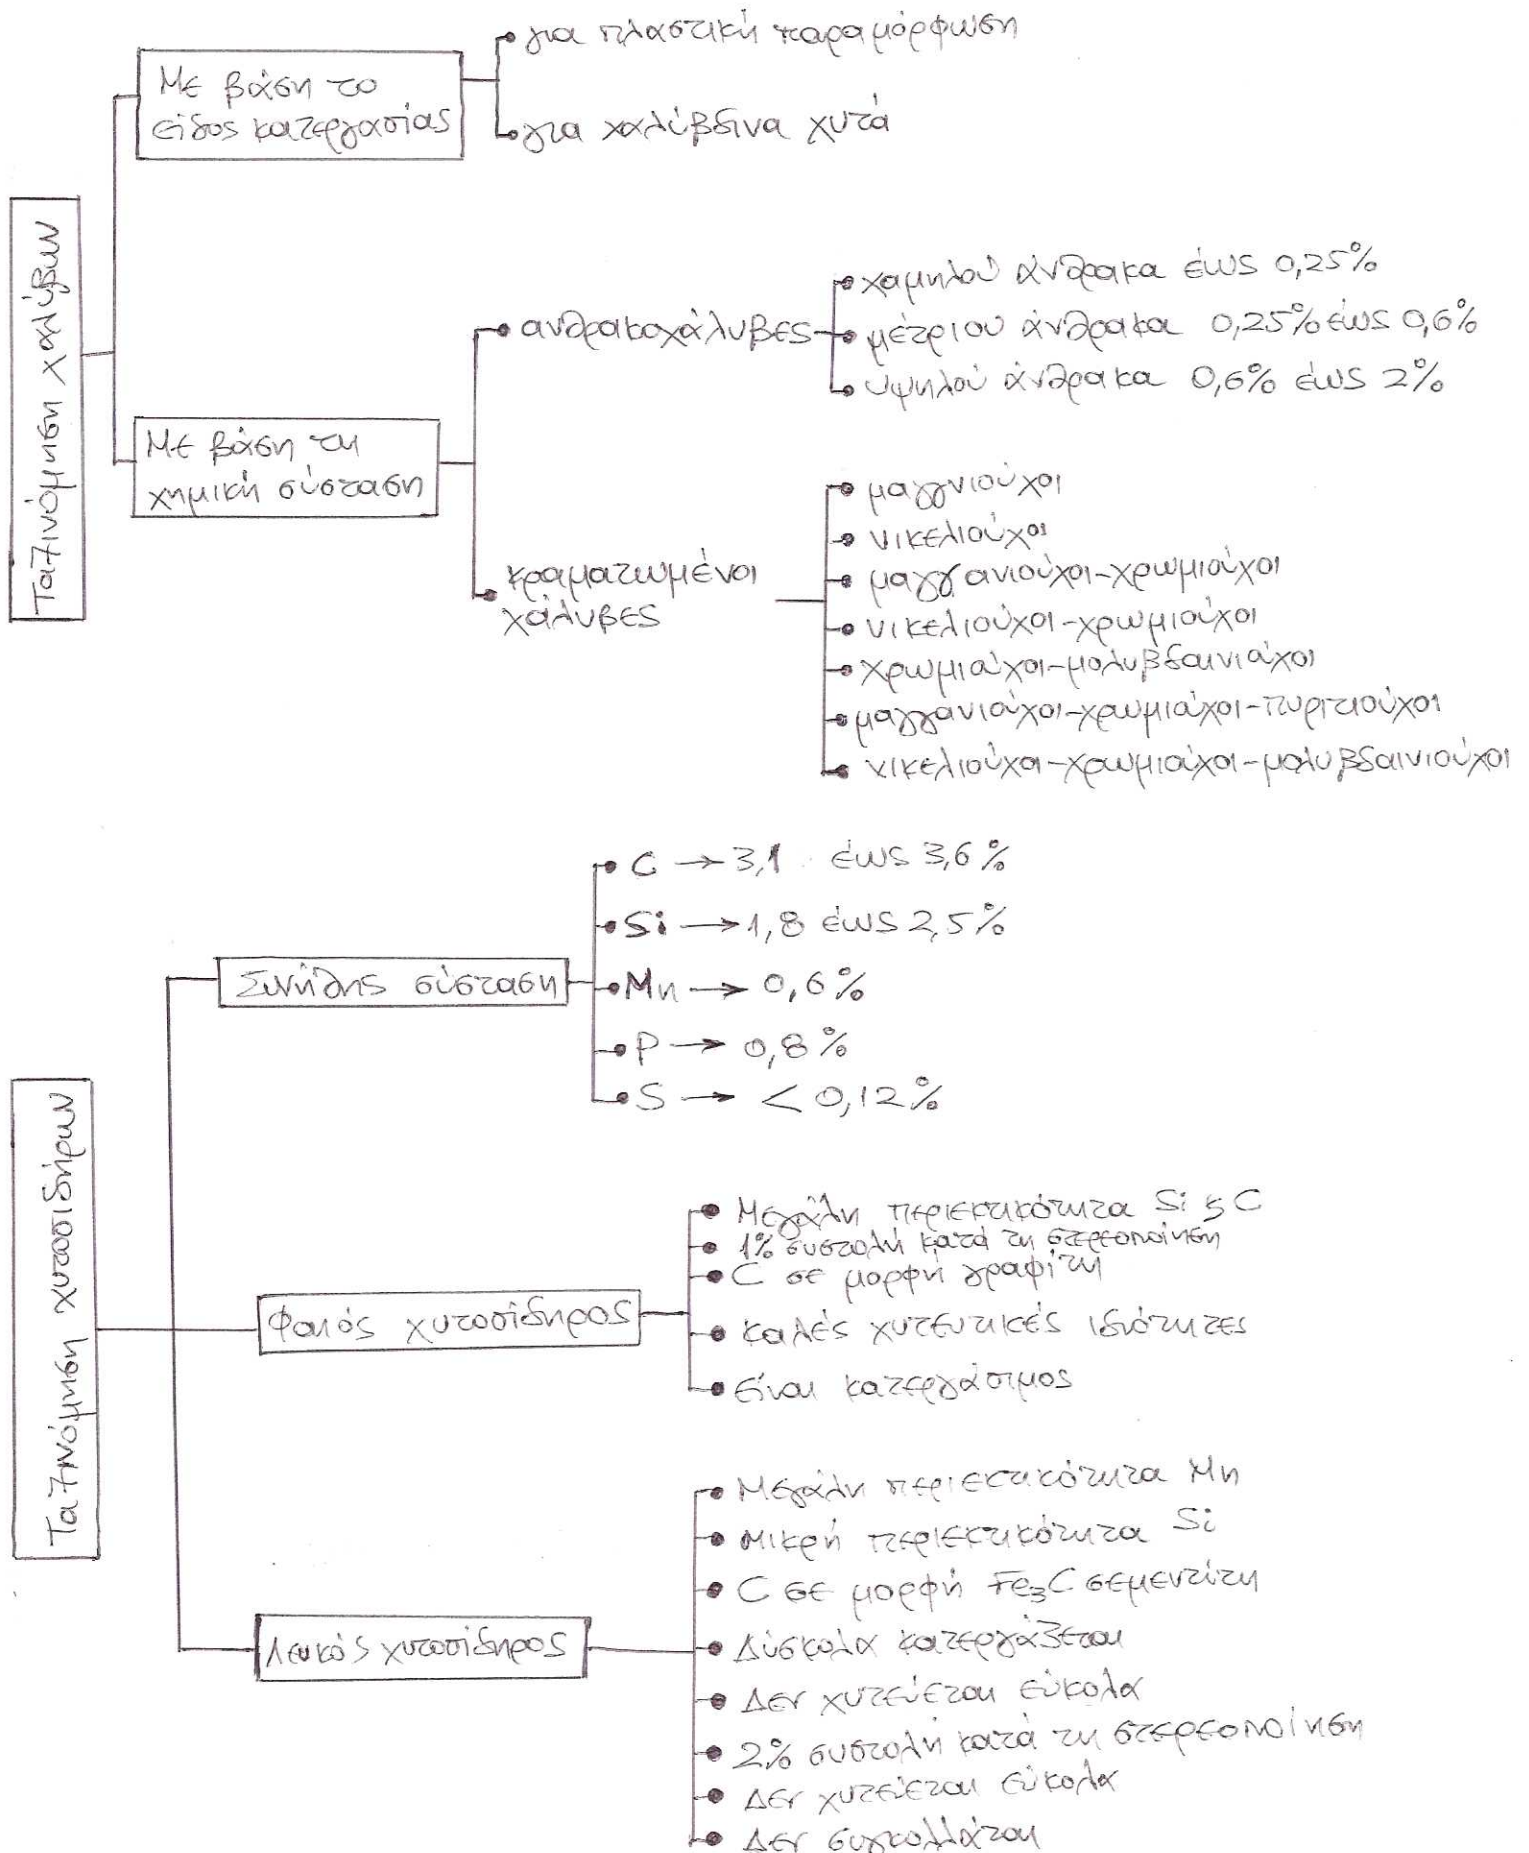 Ταξινόμηση χαλύβων
Με βάση το
είδος κατεργασίας
για πλαστική παραμόρφωση
για χαλύβδινα χυτά
Με βάση τη
χημική σύσταση
ανθρακοχάλυβες
χαμηλού άνθρακα έως 0,25%
μέτριου άνθρακα 0,25% έως 0,6%
υψηλού άνθρακα 0,6% έως 2%
κραματωμένοι
χάλυβες
μαγγνιούχοι
νικελιούχοι
μαγγανιούχοι-χρωμιούχοι
νικελιούχοι-χρωμιούχοι
χρωμιούχοι-μολυβδαινιούχοι
μαγγανιούχοι-χρωμιούχοι-πυριτιούχοι
νικελιούχοι-χρωμιούχοι-μολυβδαινιούχοι
Ταξινόμηση χυτοσιδήρων
Συνήθης σύσταση
C → 3,1 έως 3,6%
Si → 1,8 έως 2,5%
Mn → 0,6%
P → 0,8%
S → < 0,12%
Φαιός χυτοσίδηρος
Μεγάλη περιεκτικότητα Si ϗ C
1% συστολή κατά τη στερεοποίηση
C σε μορφή γραφίτη
Καλές χυτευτικές ιδιότητες
Είναι κατεργάσιμος
Λευκός χυτοσίδηρος
Μεγάλη περιεκτικότητα Mn
Μικρή περιεκτικότητα Si
C σε μορφή Fe₃C σεμεντίτη
Δύσκολα κατεργάζεται
Δεν χυτεύεται εύκολα
2% συστολή κατά τη στερεοποίηση
Δεν χυτεύεται εύκολα
Δεν συγκολλάται